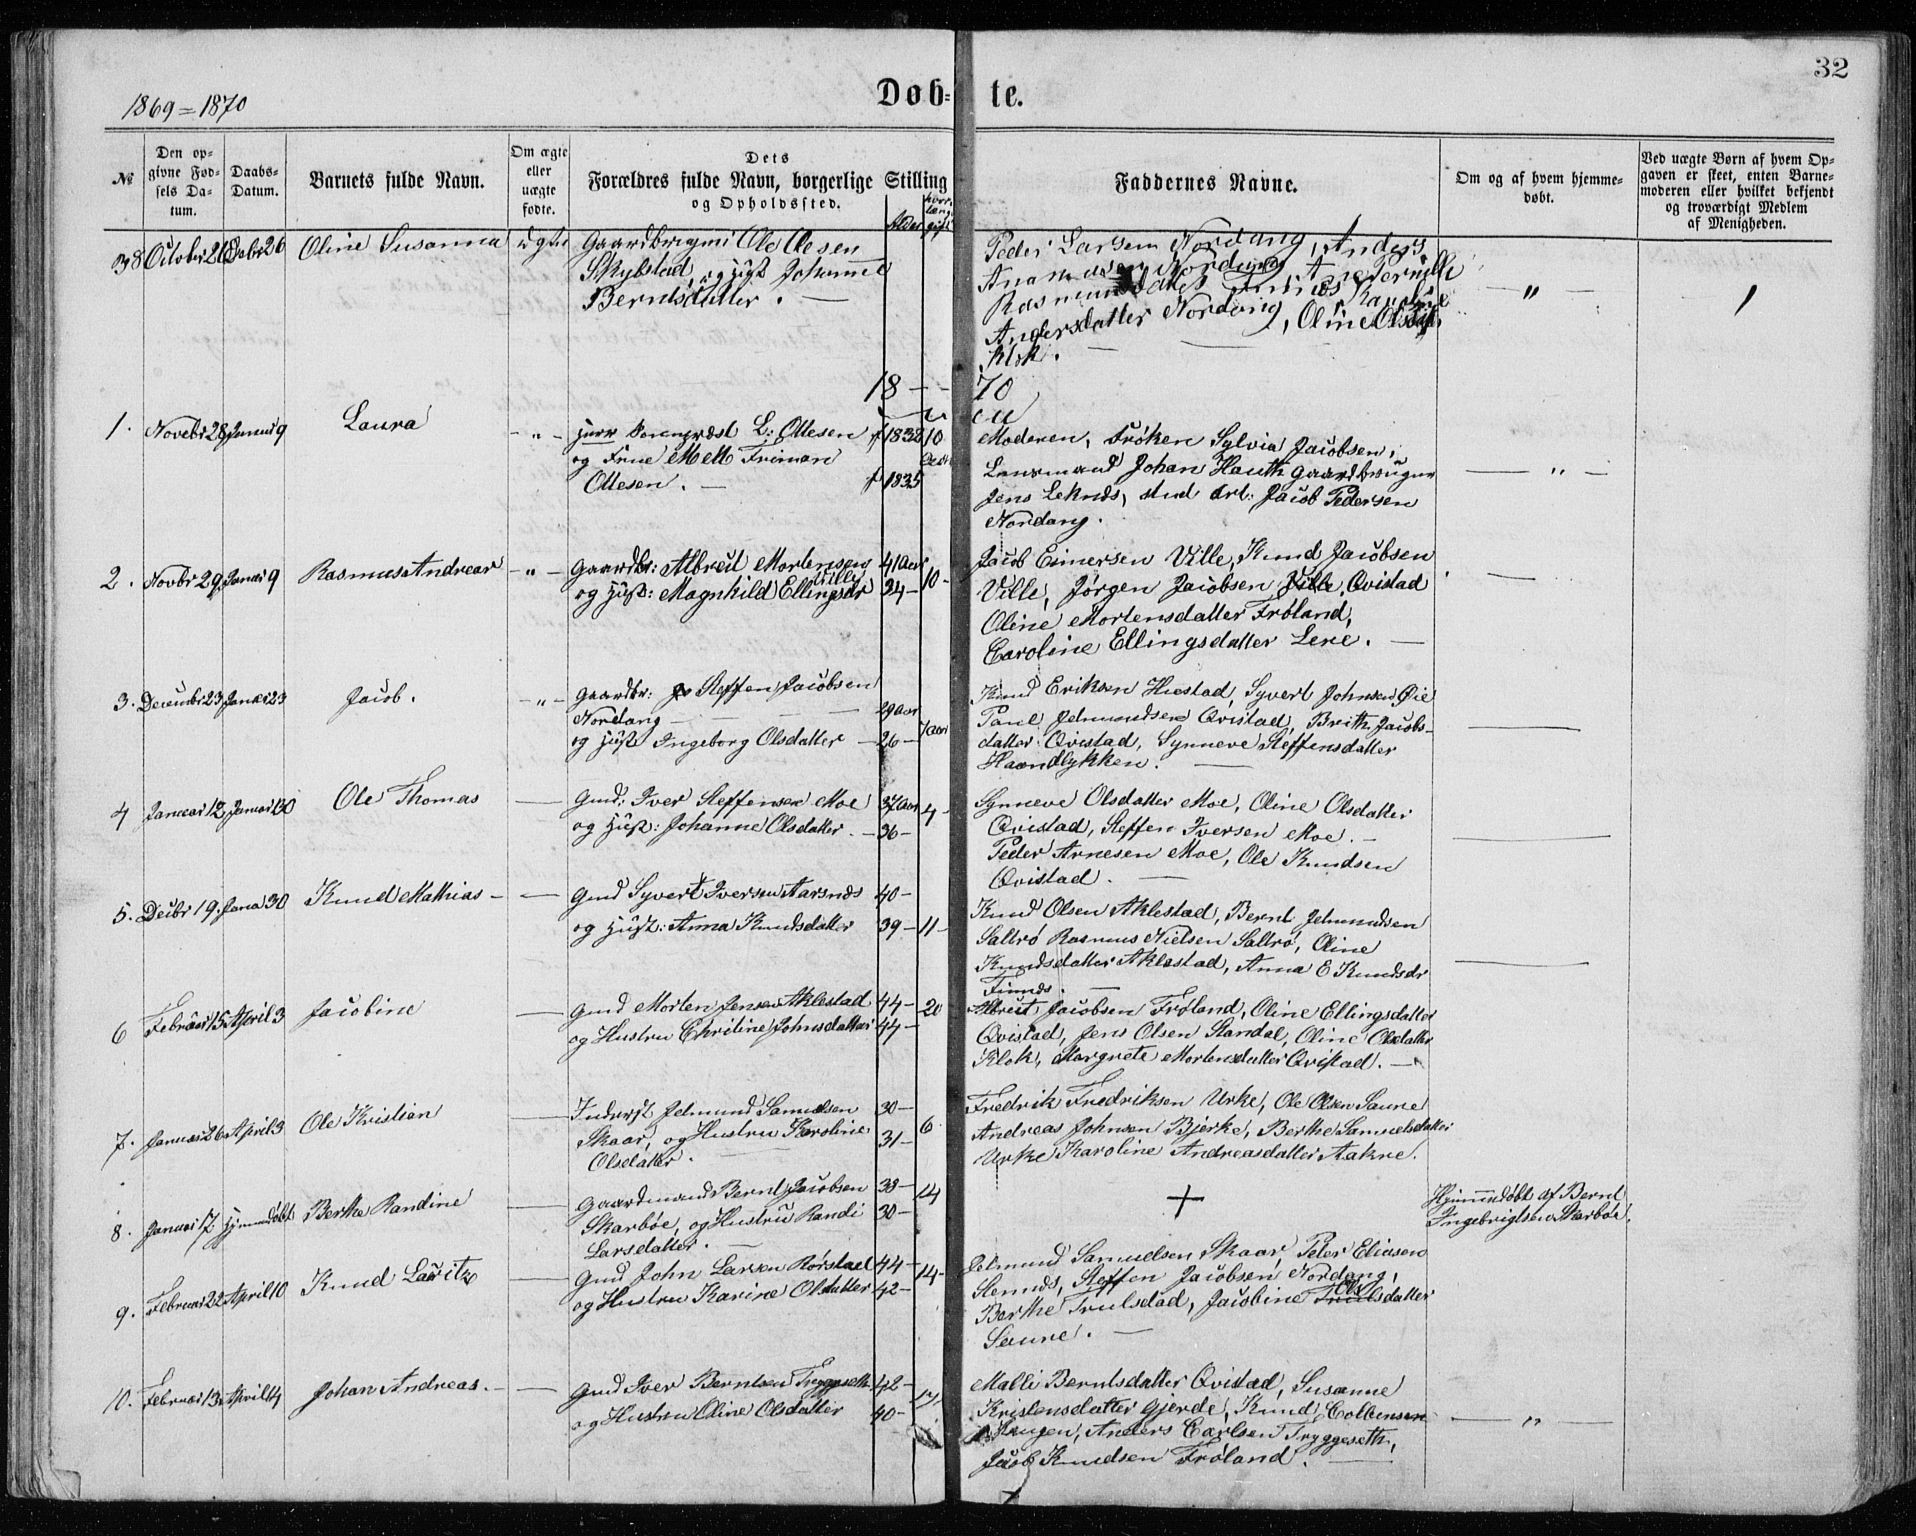 32
1869=1870
Døb=te.
№
Den op=
givne Fød=
sels Da=
tum.
Daabs=
Datum.
Barnets fulde Navn.
Om ægte
eller
uægte
fødte.
Dets
Forældres fulde Navn, borgerlige Stilling
og Opholdssted.
Alder
hvor
længe
gift
Faddernes Navne.
Om og af hvem hjemme=
døbt.
Ved uægte Børn af hvem Op=
gaven er skeet, enten Barne=
moderen eller hvilket bekjendt
og troværdigt Medlem
af Menigheden.
38 October 26 26 Oline Susanna ægte
Gaardbrugmd Ole Olesen
Skylstad, og Hust Johanne
Berntsdatter. —
Peder Larsen Nordang, Anders
Nordang, Ane Pernille
Rasmusdatter Karoline
Andersdatter Nordang, Oline Olsdatter
Klok.
18 — — 70
1. Novebr 28 Januar 9 Laura — „ —
Herr Sognepræst L: Ottesen f 1832 10
og Frue M Friman
Ottesen. — f 1835
Moderen, Frøken Sylvia Jacobsen,
Lensmand Johan Hauth Gaardbruger
Jens Leknes, stud art: Jacob Pedersen
Nordang.
— „ —
2. Novbr 29 Januar 9 Rasmus Andreas — „ —
Gaardbr: Albreit Mortensen 41 Aar
Ville
og Hust: Magnhild Ellingsdr 34 — 10 —
Jacob Eimersen Ville, Knud Jacobsen
Ville, Jørgen Jacobsen Ville, Qvistad
Oline Mortensdatter Frøland,
Caroline Ellingsdatter Lere. —
3. Decembr 23 Januar 23 Jacob. — „ —
Gaardbr: Steffen Jacobsen
Nordang — 29 Aar
og Hust Ingeborg Olsdatter — 26 — 7 Aar
Knud Eriksen Hustad, Syvert Johnsen Øie
Paul Jelmundsen Qvistad, Brith Jacobs-
datter Qvistad, Synneve Steffensdatter
Haandlykken. —
4 Januar 12 Januar 30 Ole Thomas —
Gmd: Iver Steffensen Moe 37 Aar 4 —
og Hust: Johanne Olsdatter. — 36 —
Synneve Olsdatter Moe, Oline Olsdatter
Qvistad, Steffen Iversen Moe. —
Peder Arnesen Moe, Ole Knudsen
Qvistad. —
5. Decbr 19. Janua 30 Knud Mathias — —
Gmd Syvert Iversen Aarsnes 40 —
og Hust: Anna Knudsdatter 39 — 11 —
Knud Olsen Aklestad, Bernt Jelmundsen
Saltrø Rasmus Nielsen Saltrø, Oline
Knudsdatter Aklestad, Anna E Knudsdr
Finnes. —
6 Februar 15 April 3 Jacobine —
Gmd Morten Jensen Aklestad 44 — 20
og Hustru Christine Johnsdatter 44 —
Albreit Jacobsen Frøland, Oline Ellingsdatter
Qvistad, Jens Olsen Standal, Oline Olsdatter
Klok, Margrete Mortensdatter Qvistad. —
7. Januar 26 April 3 Ole Kristian —
Inderst Jelmund Samuelsen 30 —
Skaar, og Hustru Karoline 31 — 6
Olsdatter. —
Fredrik Fredriksen Urke, Ole Olsen Saure
Andreas Johnsen Bjerke, Berthe Samuelsdatter
Urke Karoline Andreasdatter Aakre.
8. Januar 17 Hjemmedøbt Berthe Randine —
Gaardmand Bernt Jacobsen 38 — 14
Skarbøe, og Hustru Randi 30 —
Larsdatter. —
+
Hjemmedøbt af Bernt
Ingebrigtsen Skarbøe.
9. Februar 22 April 10 Knud Lauritz —
Gmd John Larsen Rørstad 44 — 14 —
og Hustru Karine Olsdatter 42 —
Jelmund Samuelsen Skaar, Peter Eliasen
Slennes, Steffen Jacobsen Nordang,
Berthe Trulsdad, Jacobine Olsdatter
Saure. —
10. Februar 13 April 14 Johan Andreas. — —
Gmd Iver Berntsen Tryggeseth 42 —
og Hustru Oline Olsdatter 40 — 17
Malli Berntsdatter Qvistad, Susanne
Kristensdatter Gjerde, Knud Colbensen
Haugen, Anders Carlsen Tryggeseth,
Jacob Knudsen Frøland. —
— „ —